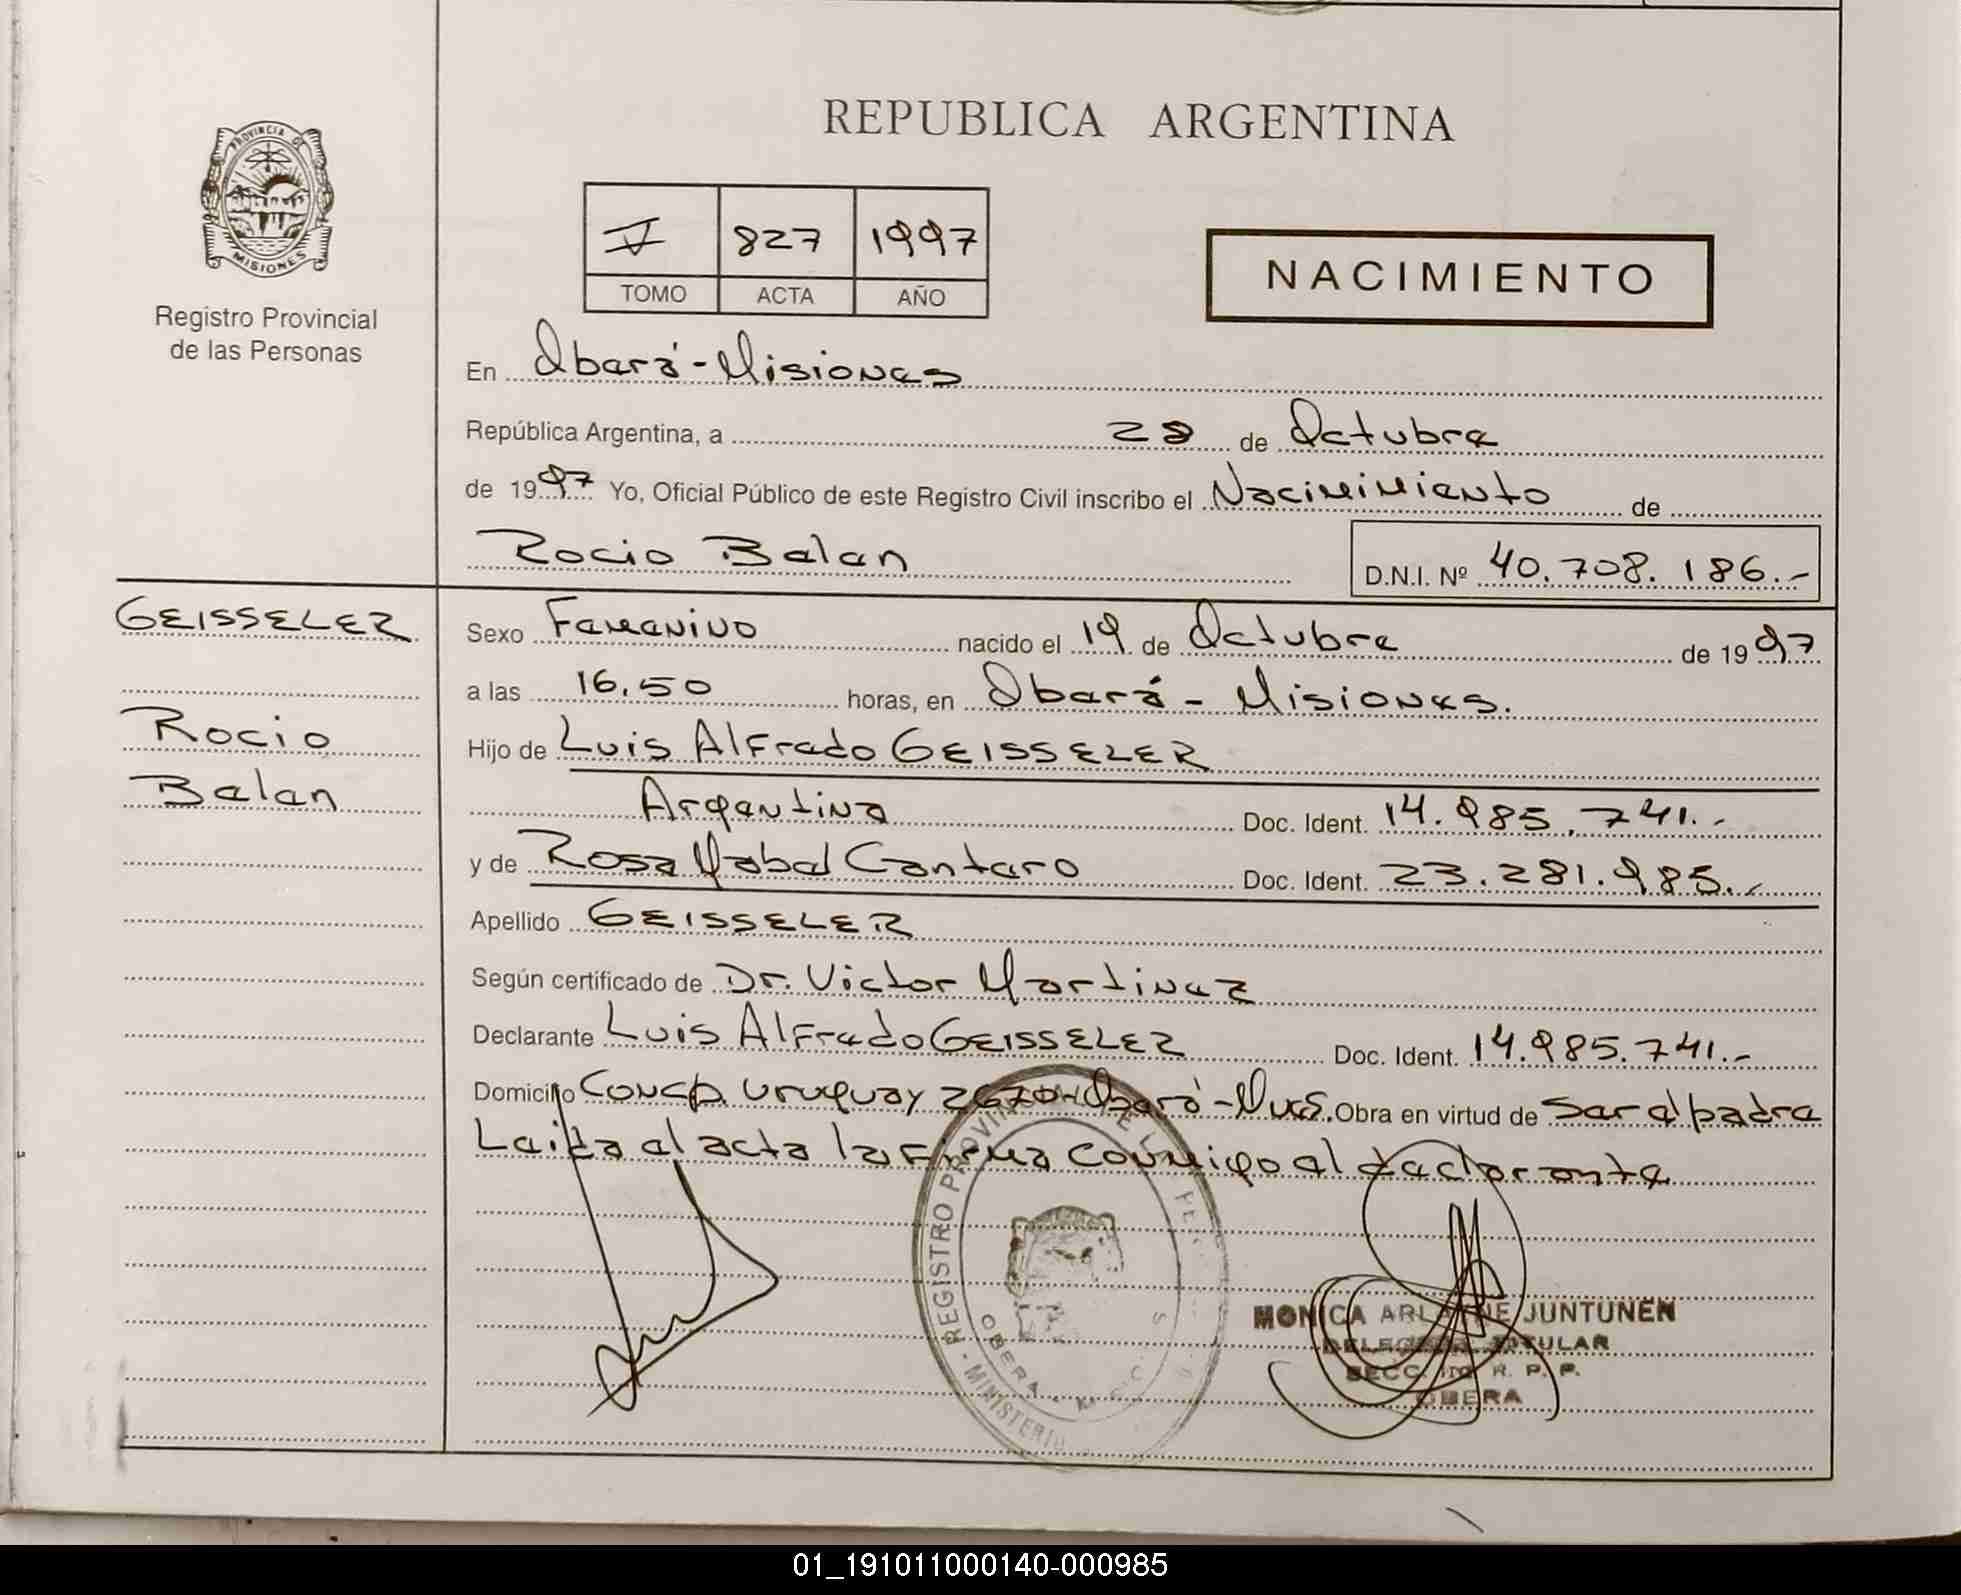 REPUBLICA ARGENTINA
PROVINCIA DE
MISIONES
Registro Provincial
de las Personas
V 827 1997
TOMO ACTA AÑO
NACIMIENTO
En Oberá - Misiones
República Argentina, a 28 de Octubre
de 1997 Yo, Oficial Público de este Registro Civil inscribo el Nacimimiento de
Rocio Belen D.N.I. Nº 40.708.186.-
GEISSELER
Rocio
Belen
Sexo Femenino nacido el 19 de Octubre de 1997
a las 16,50 horas, en Oberá - Misiones.
Hijo de Luis Alfredo GEISSELER
Argentina Doc. Ident. 14.985.741.-
y de Rosa Mabel Cantero Doc. Ident. 23.281.985.-
Apellido GEISSELER
Según certificado de Dr. Victor Martinez
Declarante Luis Alfredo GEISSELER Doc. Ident. 14.985.741.-
Domicilio Concp. Uruguay 2670 - Oberá - Mnes. Obra en virtud de ser el padre
Leida el acta la firma conmigo el declarante
REGISTRO PROVINCIAL DE LAS PE
MINISTERIO
OBERA
MONICA ARLENNE JUNTUNEN
DELEGADA TITULAR
SECC. 1ra R. P. P.
OBERA
01_191011000140-000985